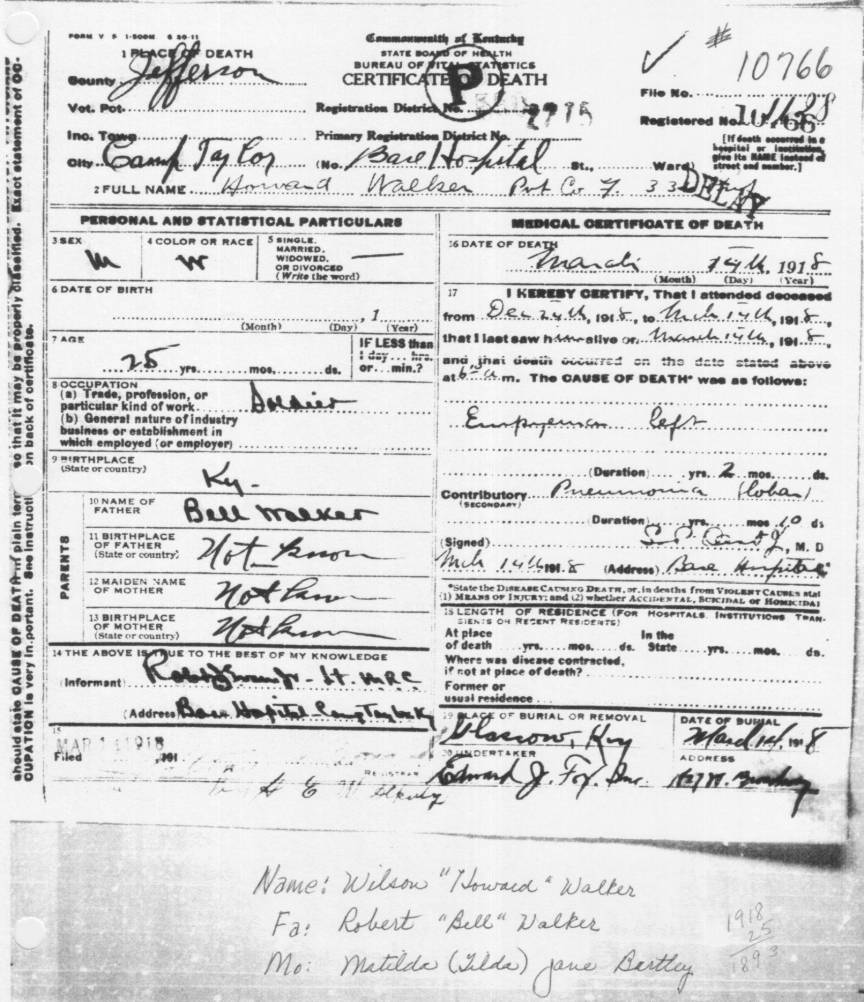 FORM V 5 1-500M 6 20-11
Commonwealth of Kentucky
STATE BOARD OF HEALTH
BUREAU OF VITAL STATISTICS
CERTIFICATE OF DEATH
P
# 10766
File No.
1 PLACE OF DEATH
County Jefferson
Vot. Pct.
Registration District No.
Registered No.
Inc. Town
Primary Registration District No.
[If death occurred in a hospital or institution, give its NAME instead of street and number.]
City Camp Taylor (No. Base Hospital St., Ward)
DELAY
2 FULL NAME Howard Walker Pvt Co F. 33
PERSONAL AND STATISTICAL PARTICULARS
3 SEX M
4 COLOR OR RACE W
5 SINGLE, MARRIED, WIDOWED, OR DIVORCED (Write the word) —
6 DATE OF BIRTH
, 1
(Month) (Day) (Year)
7 AGE
25 yrs. mos. ds.
IF LESS than 1 day hrs. or min.?
8 OCCUPATION
(a) Trade, profession, or particular kind of work Soldier
(b) General nature of industry business or establishment in which employed (or employer)
9 BIRTHPLACE (State or country) Ky-
PARENTS
10 NAME OF FATHER Bell Walker
11 BIRTHPLACE OF FATHER (State or country) Not know
12 MAIDEN NAME OF MOTHER Not know
13 BIRTHPLACE OF MOTHER (State or country) Not know
14 THE ABOVE IS TRUE TO THE BEST OF MY KNOWLEDGE
(Informant) Jr- Lt. MRC
(Address) Base Hospital-Camp Taylor Ky
15
Filed MAR 1 1918, 191
REGISTRAR
MEDICAL CERTIFICATE OF DEATH
16 DATE OF DEATH
March 14th, 1918
(Month) (Day) (Year)
17 I HEREBY CERTIFY, That I attended deceased
from Dec 24th, 1918, to Mch 14th, 1918,
that I last saw him alive on March 14th, 1918,
and that death occurred on the date stated above
at 6 a m. The CAUSE OF DEATH* was as follows:
Empyema left
(Duration) yrs. 2 mos. ds.
Contributory Pneumonia (lobar)
(SECONDARY)
(Duration) yrs. mos 10 ds
(Signed) M. D
Mch 14th 1918 (Address) Base Hospital
*State the DISEASE CAUSING DEATH, or, in deaths from VIOLENT CAUSES stat
(1) MEANS OF INJURY; and (2) whether ACCIDENTAL, SUICIDAL or HOMICIDAL
18 LENGTH OF RESIDENCE (FOR HOSPITALS, INSTITUTIONS, TRANSIENTS OR RECENT RESIDENTS)
At place of death yrs. mos. ds. In the State yrs. mos. ds.
Where was disease contracted, if not at place of death?
Former or usual residence
19 PLACE OF BURIAL OR REMOVAL
Glasgow, Ky
DATE OF BURIAL
March 14, 1918
20 UNDERTAKER
Edward J. Foy, Inc.
ADDRESS
should state CAUSE OF DEATH in plain term so that it may be properly classified. Exact statement of OC-
CUPATION is very important. See instructi on back of certificate.
Name: Wilson "Howard" Walker
Fa: Robert "Bell" Walker
Mo: Matilda (Tilda) Jane Bartley
1918
25
1893